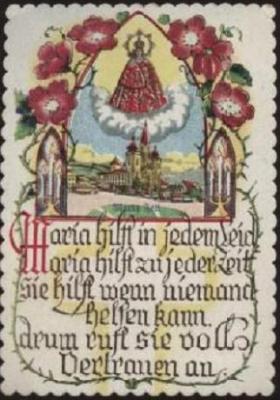 Maria Zell
Maria hilft in jedem Leid
Maria hilft zu jeder Zeit
sie hilft wenn niemand
helfen kann.
drum ruft sie voll
Vertrauen an.